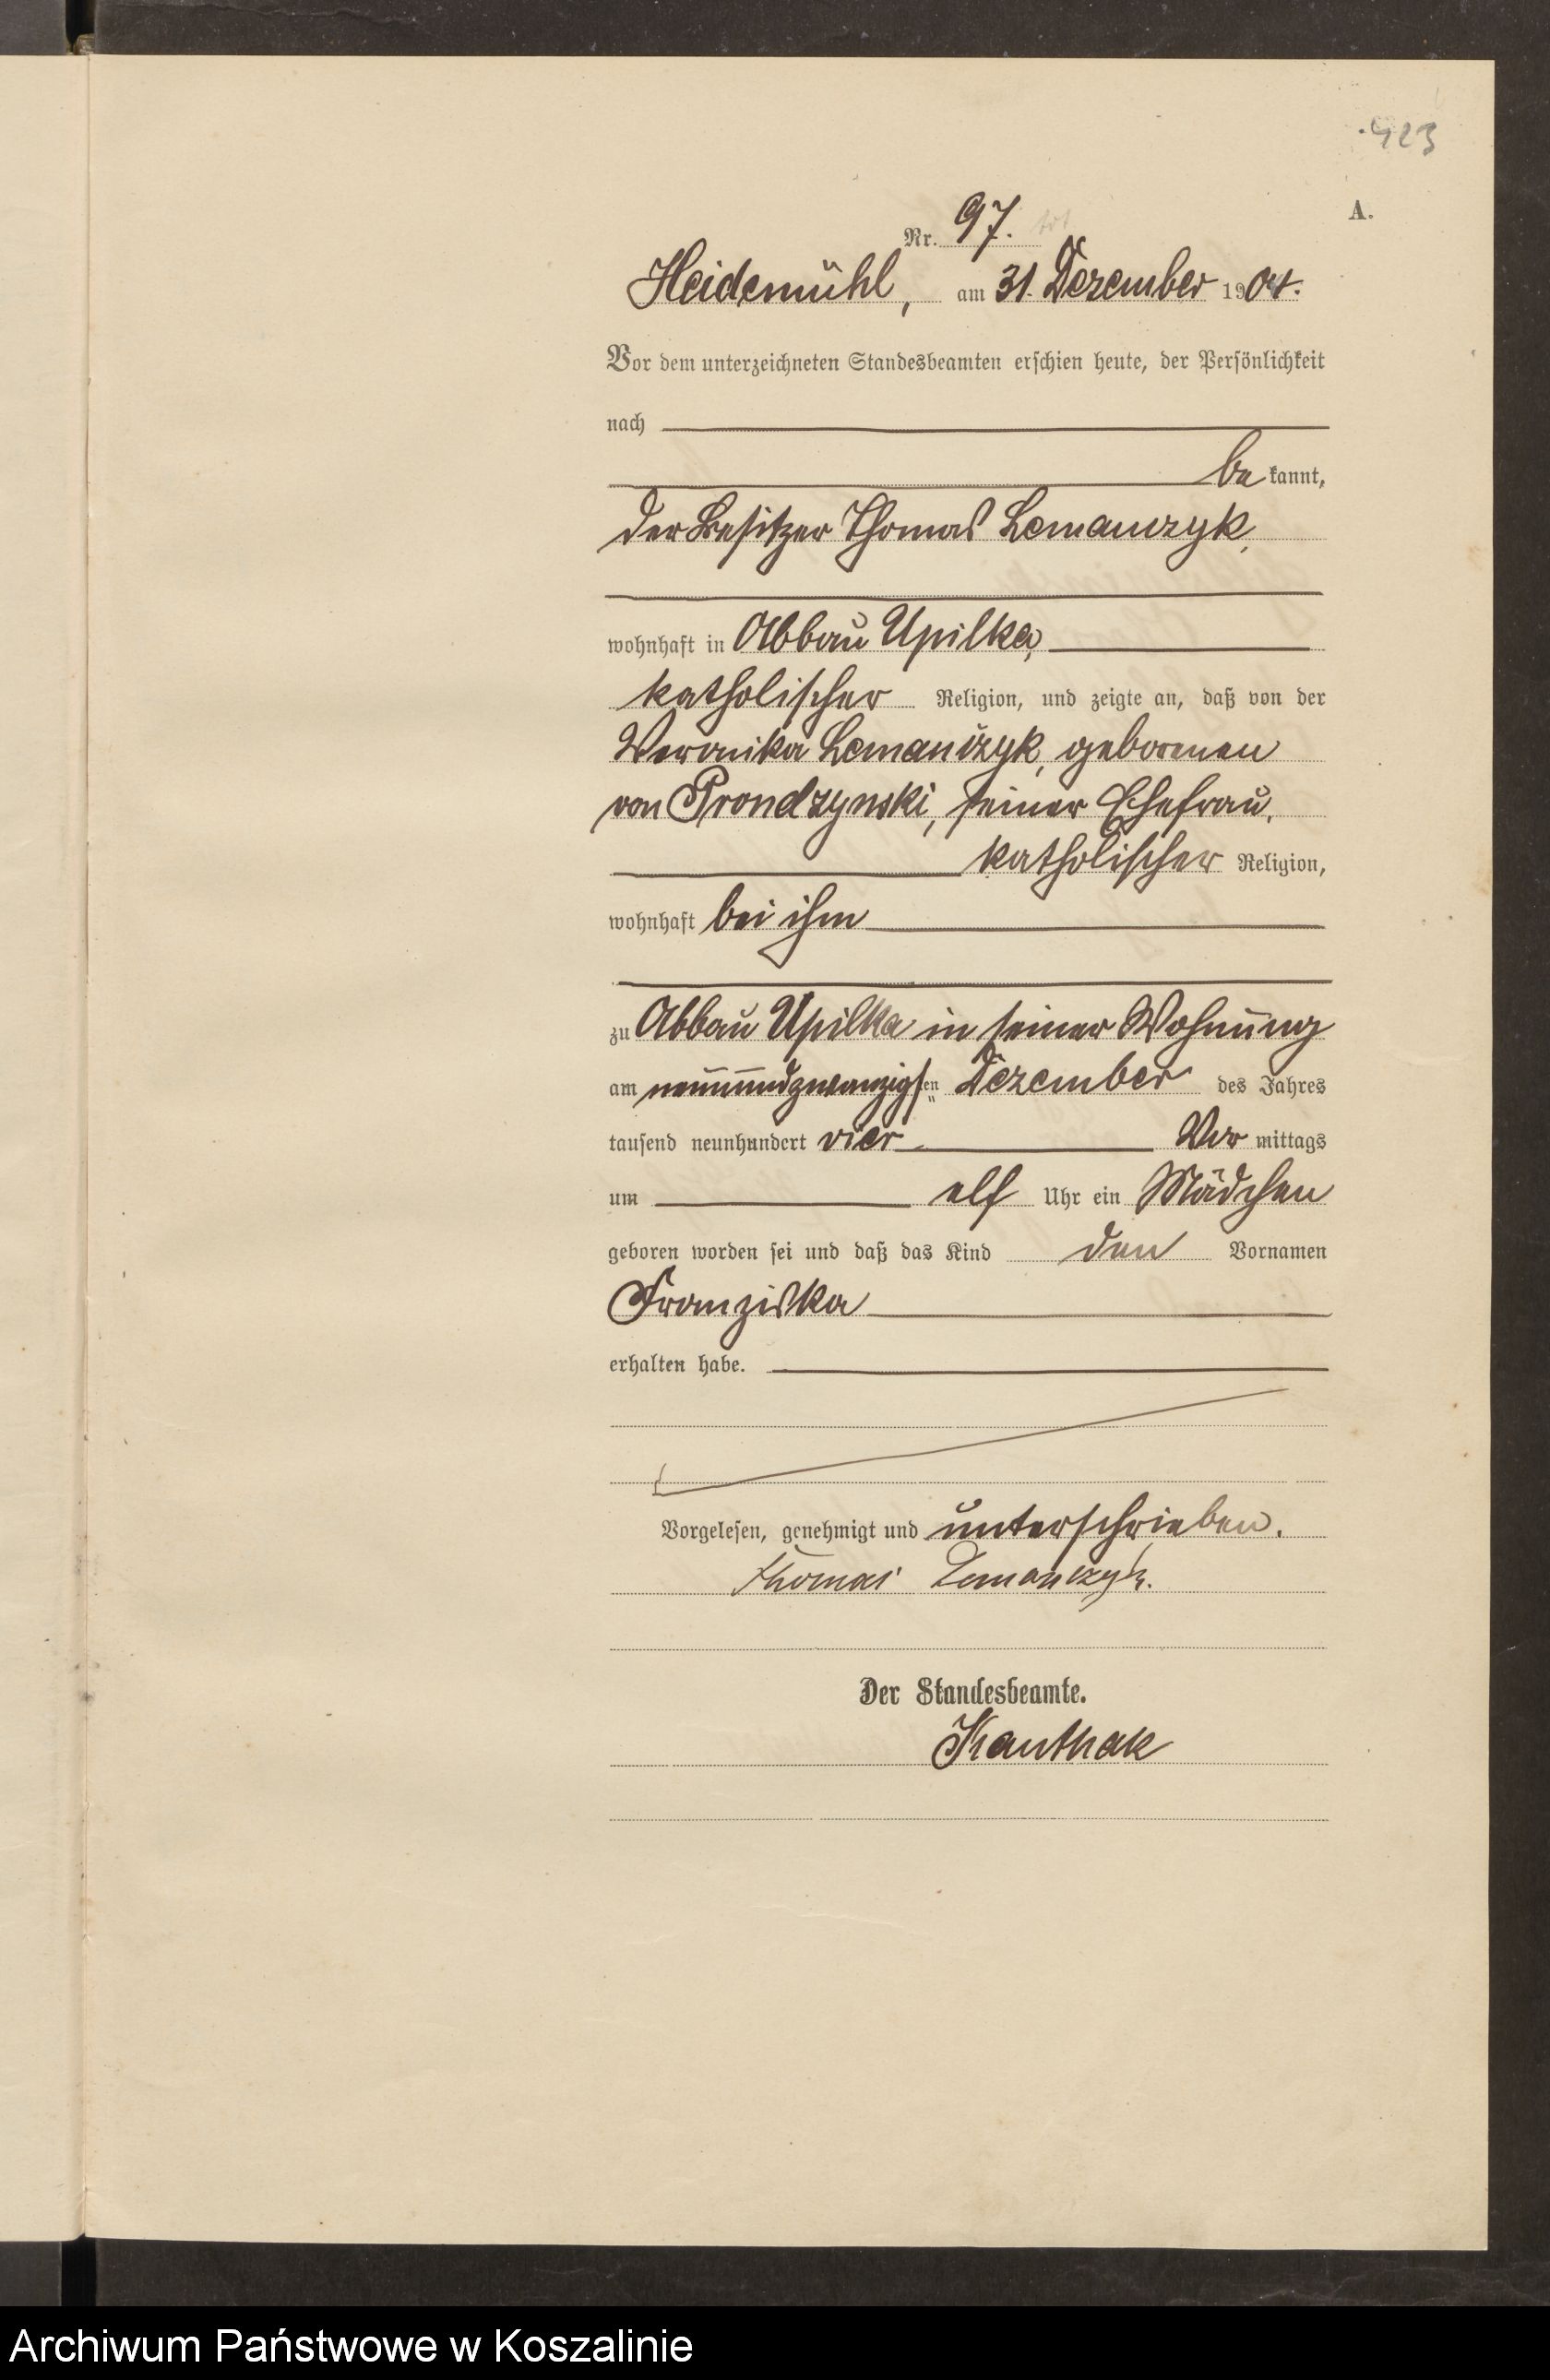 423
A.
Nr. 97. tot
Heidemühl, am 31. Dezember 1904.
Vor dem unterzeichneten Standesbeamten erschien heute, der Persönlichkeit
nach
be kannt,
der Besitzer Thomas Lemanczyk,
wohnhaft in Abbau Upilka,
katholischer Religion, und zeigte an, daß von der
Veronika Lemanczyk, geborenen
von Prondzynski, seiner Ehefrau,
katholischer Religion,
wohnhaft bei ihm
zu Abbau Upilka in seiner Wohnung
am neunundzwanzigsten Dezember des Jahres
tausend neunhundert vier Vor mittags
um elf Uhr ein Mädchen
geboren worden sei und daß das Kind den Vornamen
Franziska
erhalten habe.
Vorgelesen, genehmigt und unterschrieben.
Thomas Lemanczyk.
Der Standesbeamte.
Kauthak
Archiwum Państwowe w Koszalinie